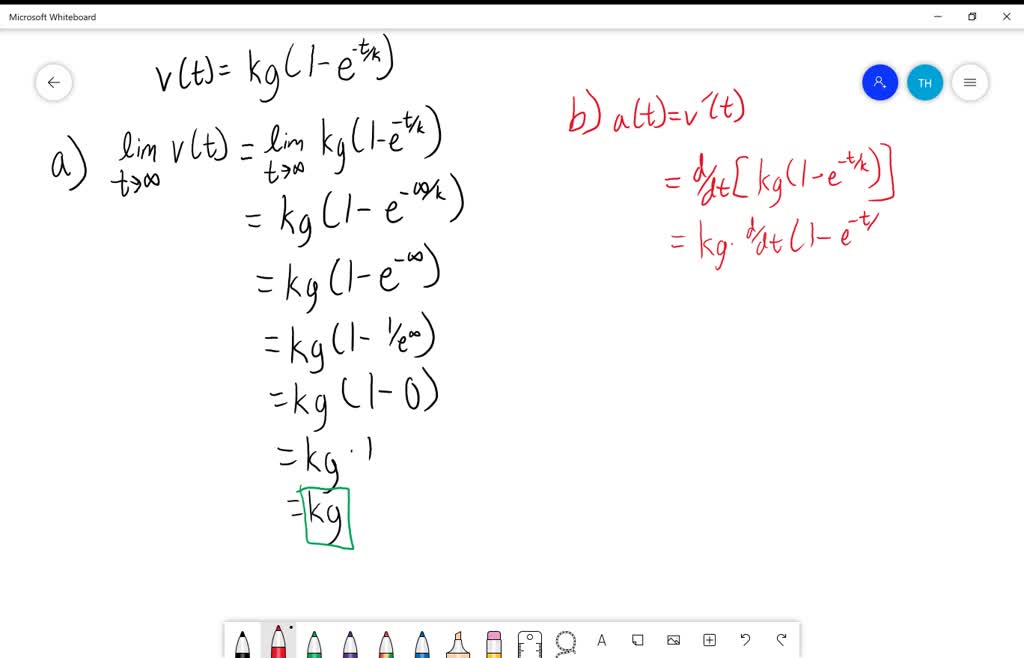 Microsoft Whiteboard
TH
v(t) = kg(1-e^{-t/k})
a) lim t→∞ v(t) = lim t→∞ kg(1-e^{-t/k})
= kg(1-e^{-∞/k})
= kg(1-e^{-∞})
= kg(1-1/e^∞)
= kg(1-0)
= kg · 1
= kg
b) a(t)=v'(t)
= d/dt[kg(1-e^{-t/k})]
= kg · d/dt(1-e^{-t/
A